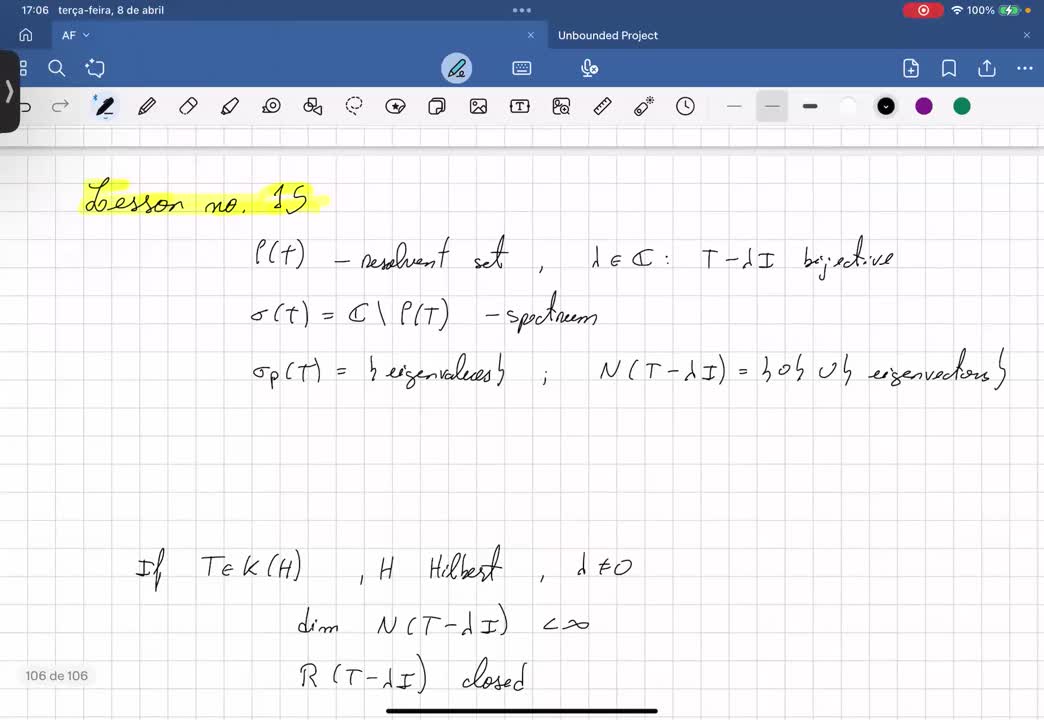 17:06 terça-feira, 8 de abril
100%
AF
Unbounded Project
Lesson no. 15
ρ(T) – resolvent set , λ ∈ ℂ : T – λI bijective
σ(T) = ℂ \ ρ(T) – spectrum
σp(T) = {eigenvalues} ; N(T – λI) = {0} ∪ {eigenvectors}
If T ∈ K(H) , H Hilbert , λ ≠ 0
dim N(T – λI) < ∞
R(T – λI) closed
106 de 106